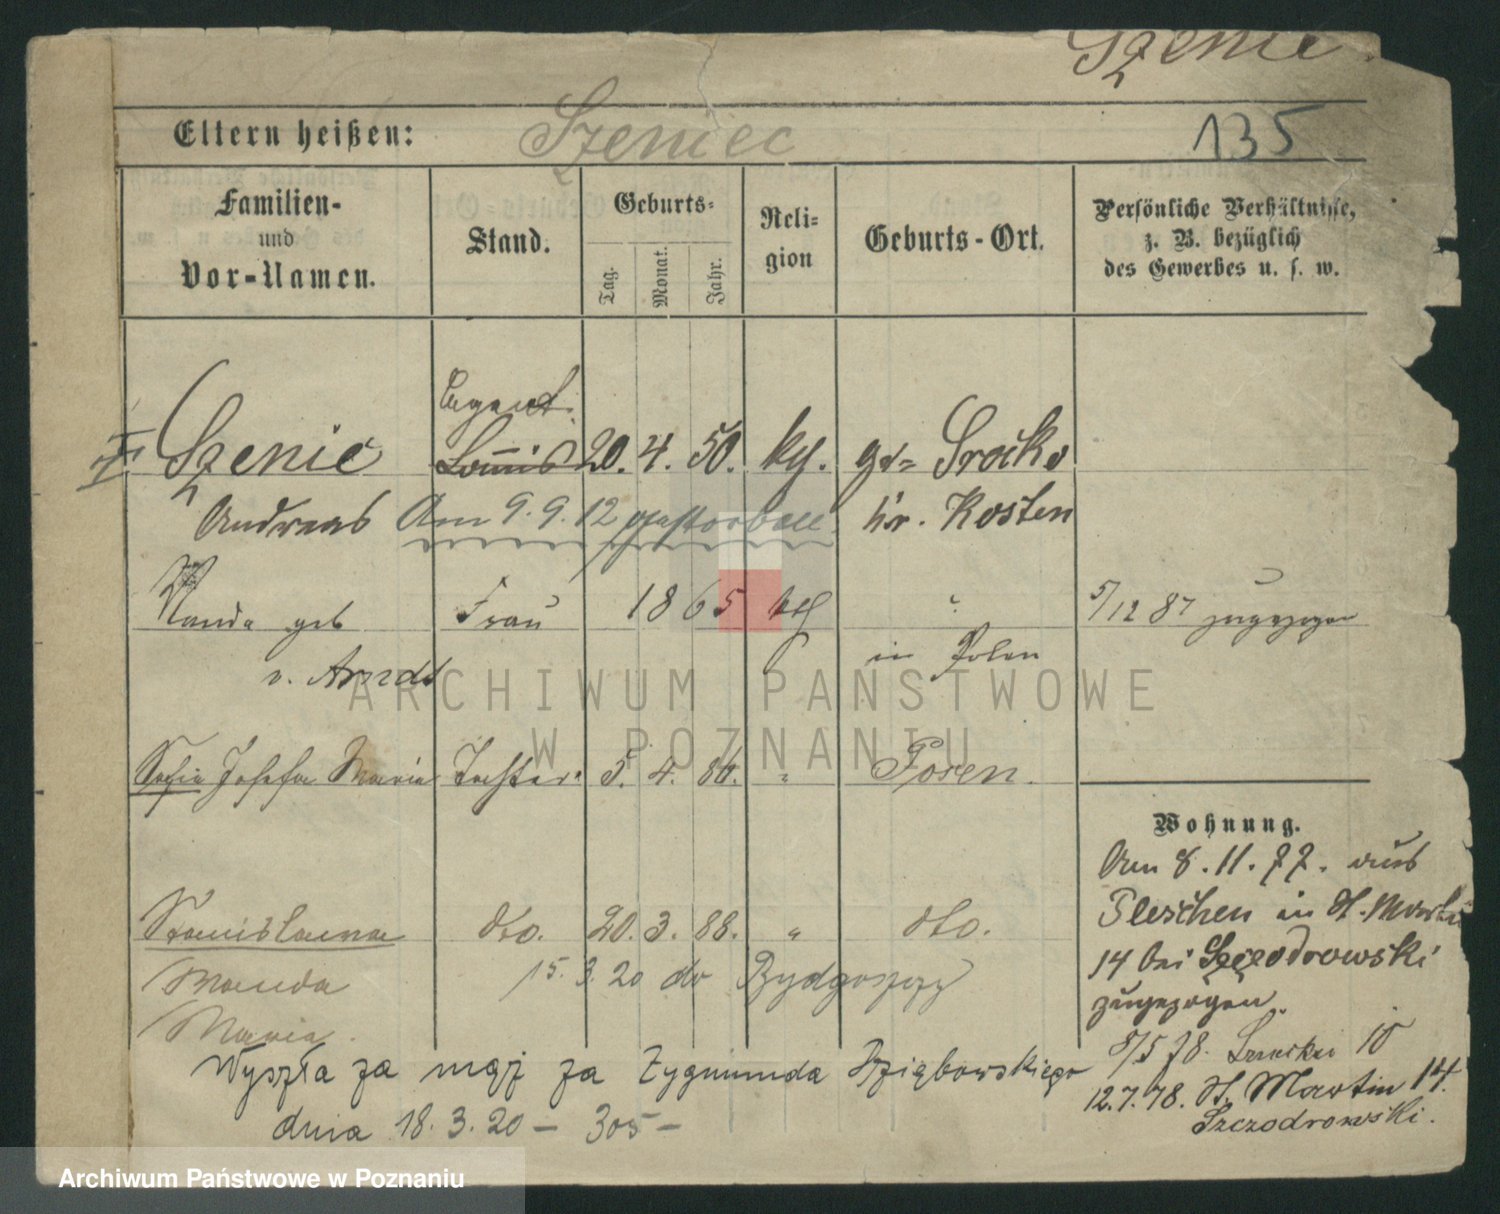 Szenic
Eltern heißen: Szeniec 135
Familien- und Vor-Namen.
Stand.
Geburts-
Tag. Monat. Jahr.
Reli-gion
Geburts-Ort.
Persönliche Verhältnisse, z. B. bezüglich des Gewerbes u. s. w.
Agent
Szenic Commis 20. 4. 50. kth. Srocko
Andreas Am 9. 9. 12 gestorben Kr. Kosten
Wanda geb Frau 1865 kth " 5/12 87 zugezogen
v. Arndt in Polen
Sofie Josefa Maria Tochter 5. 4. 86. " Posen.
Wohnung.
Am 8. 11. 77. aus
Stanislawa dto. 20. 3. 88. " dto.
Pleschen in St. Martin
14 bei Szczodrowski
Wanda 15. 3. 20 do Bydgoszczy
zugezogen.
Maria.
8/5 78. 10
Wyszła za mąż za Zygmunda Dziębowskiego
12. 7. 78. St. Martin 14.
dnia 18. 3. 20 – 305 –
Szczodrowski.
ARCHIWUM PAŃSTWOWE
W POZNANIU
Archiwum Państwowe w Poznaniu